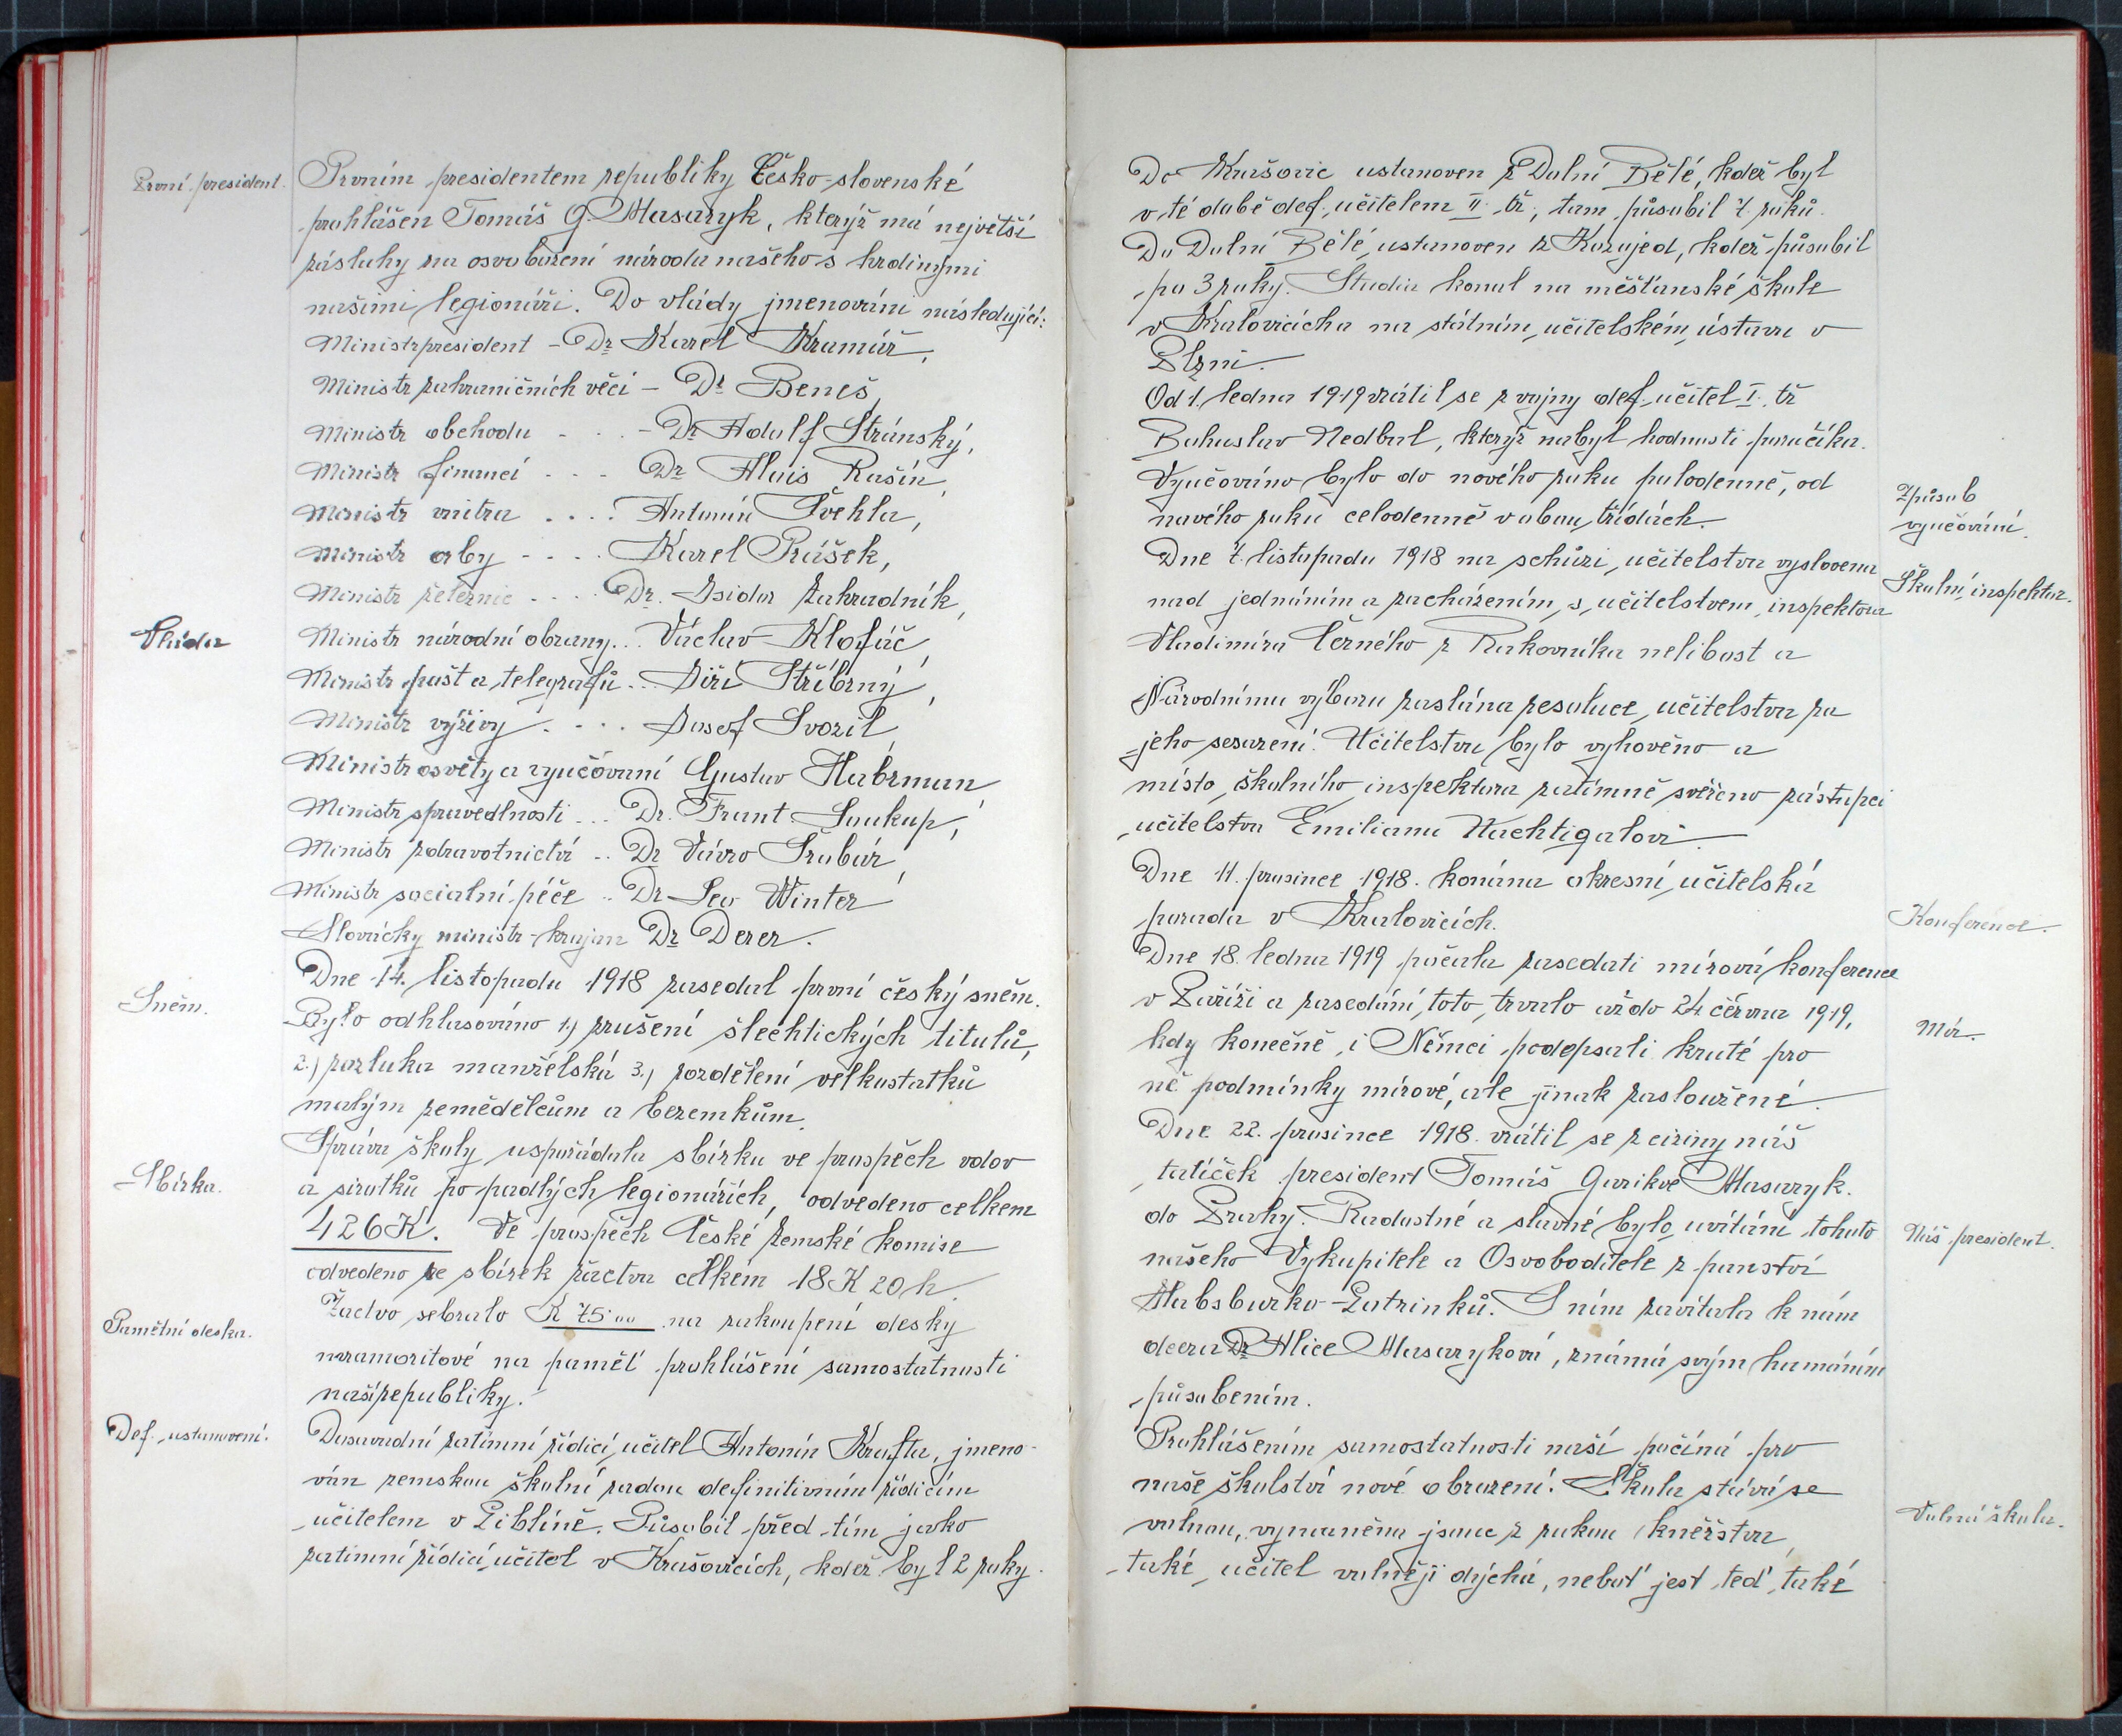 První president.
Prvním presidentem republiky Česko-slovenské
prohlášen Tomáš G. Masaryk, kterýž má největší
zásluhy na osvobození národa našeho s hrdinými
našimi legionáři. Do vlády jmenováni následující:
Ministrpresident - Dr Karel Kramář,
Ministr zahraničních věcí - Dr Beneš,
Ministr obchodu . . . - Dr Adolf Stránský,
Ministr financí . . . Dr Alois Rašín,
Ministr vnitra . . . . Antonín Švehla,
Ministr orby - - . . Karel Prášek,
Ministr železnic . . . . Dr. Isidor Zahradník,
Vláda
Ministr národní obrany . . . Václav Klofáč,
Ministr pošt a telegrafů . . . Jiří Stříbrný,
Ministr výživy . . . . Josef Svozil,
Ministr osvěty a vyučování Gustav Habrman,
Ministr spravedlnosti . . . Dr. Frant. Soukup,
Ministr zdravotnictví . . Dr Vávro Šrobár,
Ministr sociální péče . . Dr Lev Winter
Slovácký ministr-krajan Dr Derer.
Sněm.
Dne 14. listopadu 1918 zasedal první český sněm.
Bylo odhlasováno 1.) zrušení šlechtických titulů,
2.) rozluka manželská 3.) rozdělení velkostatků
malým zemědělcům a bezemkům.
Sbírka.
Správa školy uspořádala sbírku ve prospěch vdov
a sirotků po padlých legionářích, odvedeno celkem
426 K. Ve prospěch České zemské komise
odvedeno ze sbírek žactva celkem 18 K 20 h.
Pamětní deska.
Žactvo sebralo K 75·00 na zakoupení desky
mramoritové na paměť prohlášení samostatnosti
naší republiky.
Def. ustanovení.
Dosavadní zatímní řídící učitel Antonín Krafta, jmeno-
ván zemskou školní radou definitivním řídícím
učitelem v Liblíně. Působil před tím jako
zatimní řídící učitel v Krašovicích, kdež byl 2 roky.
Do Krašovic ustanoven z Dolní Bělé, kdež byl
v té době def. učitelem II. tř., tam působil 7 roků.
Do Dolní Bělé ustanoven z Kozojed, kdež působil
po 3 roky. Studia konal na měšťanské škole
v Kralovicích a na státním učitelském ústavu v
Plzni.
Od 1. ledna 1919 vrátil se z vojny def. učitel I. tř
Bohuslav Nedbal, kterýž nabyl hodnosti poručíka.
Způsob
vyučování.
Vyučováno bylo do nového roku polodenně, od
nového roku celodenně v obou třídách.
Školní inspektor.
Dne 7. listopadu 1918 na schůzi učitelstva vyslovena
nad jednáním a zacházením s učitelstvem inspektora
Vladimíra Černého z Rakovníka nelibost a
Národnímu výboru zaslána resoluce učitelstva za
jeho sesazení. Učitelstvu bylo vyhověno a
místo školního inspektora zatímně svěřeno zástupci
učitelstva Emilianu Nachtigalovi.
Konference.
Dne 11. prosince 1918. konána okresní učitelská
porada v Kralovicích.
Dne 18. ledna 1919 počala zasedati mírová konference
Mír.
v Paříži a zasedání toto trvalo až do 24 června 1919,
kdy konečně i Němci podepsali kruté pro
ně podmínky mírové, ale jinak zasloužené.
Dne 22. prosince 1918. vrátil se z ciziny náš
tatíček president Tomáš Garikve Masaryk.
Náš president.
do Prahy. Radostné a slavné bylo uvítání tohoto
našeho Vykupitele a Osvoboditele z panství
Habsburko-Lotrinků. S ním zavítala k nám
dcera Dr Alice Masaryková, známá svým humáním
působením.
Prohlášením samostatnosti naší počíná pro
naše školství nové obrození. Škola stává se
Volná škola.
volnou, vymaněna jsouc z rukou kněžstva,
také učitel volněji dýchá, neboť jest teď také